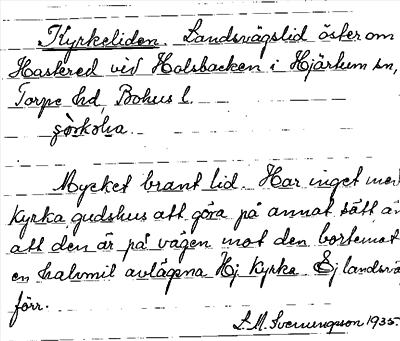 Kyrkeliden. Landsvägslid öster om
Hastered vid Holsbacken i Hjärtum sn,
Torpe hd, Bohus l.
Mycket brant lid. Har inget med
kyrka, gudshus att göra på annat sätt än
att den är på vägen mot den bortemot
en halvmil avlägsna Hj kyrka. Ej landsvä
förr.
L.M. Svenungsson 1935.